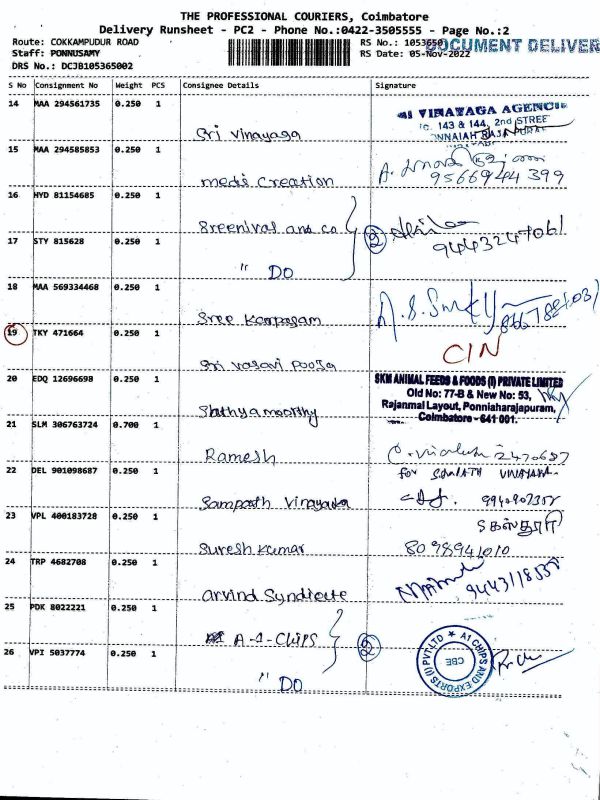 THE PROFESSIONAL COURIERS, Coimbatore
Delivery Runsheet - PC2 - Phone No.:0422-3505555 - Page No.:2
Route: COKKAMPUDUR ROAD
RS No.: 1053650
DOCUMENT DELIVER
Staff: PONNUSAMY
RS Date: 05-Nov-2022
DRS No.: DCJB105365002
S No Consignment No Weight PCS Consignee Details Signature
14 MAA 294561735 0.250 1
Sri Vinayaga
SRI VINAYAGA AGENCIE
143 & 144, 2nd STREET
15 MAA 294585853 0.250 1
medi Creation
9566944399
16 HYD 81154685 0.250 1
Sreenivas and co
2
9443247061
17 STY 815628 0.250 1
" DO
18 MAA 569334468 0.250 1
Sree Karpagam
19 TKY 471664 0.250 1
CIN
Sri Vasavi Pooja
20 EDQ 12696698 0.250 1
Sathyamoorthy
SKM ANIMAL FEEDS & FOODS (I) PRIVATE LIMITED
Old No: 77-B & New No: 53,
Rajanmal Layout, Ponniaharajapuram,
Coimbatore - 641 001.
21 SLM 306763724 0.700 1
Ramesh
2470687
22 DEL 901098687 0.250 1
for SAMPATH VINAYAKA
Sampath Vinayaka
23 VPL 400183728 0.250 1
Suresh Kumar
8098941010
24 TRP 4682708 0.250 1
Arvind Syndicate
9443118538
25 PDK 8022221 0.250 1
A-1-CHIPS
2
26 VPI 5037774 0.250 1
" DO
A1 CHIPS AND EXPORTS (I) PVT LTD
CBE